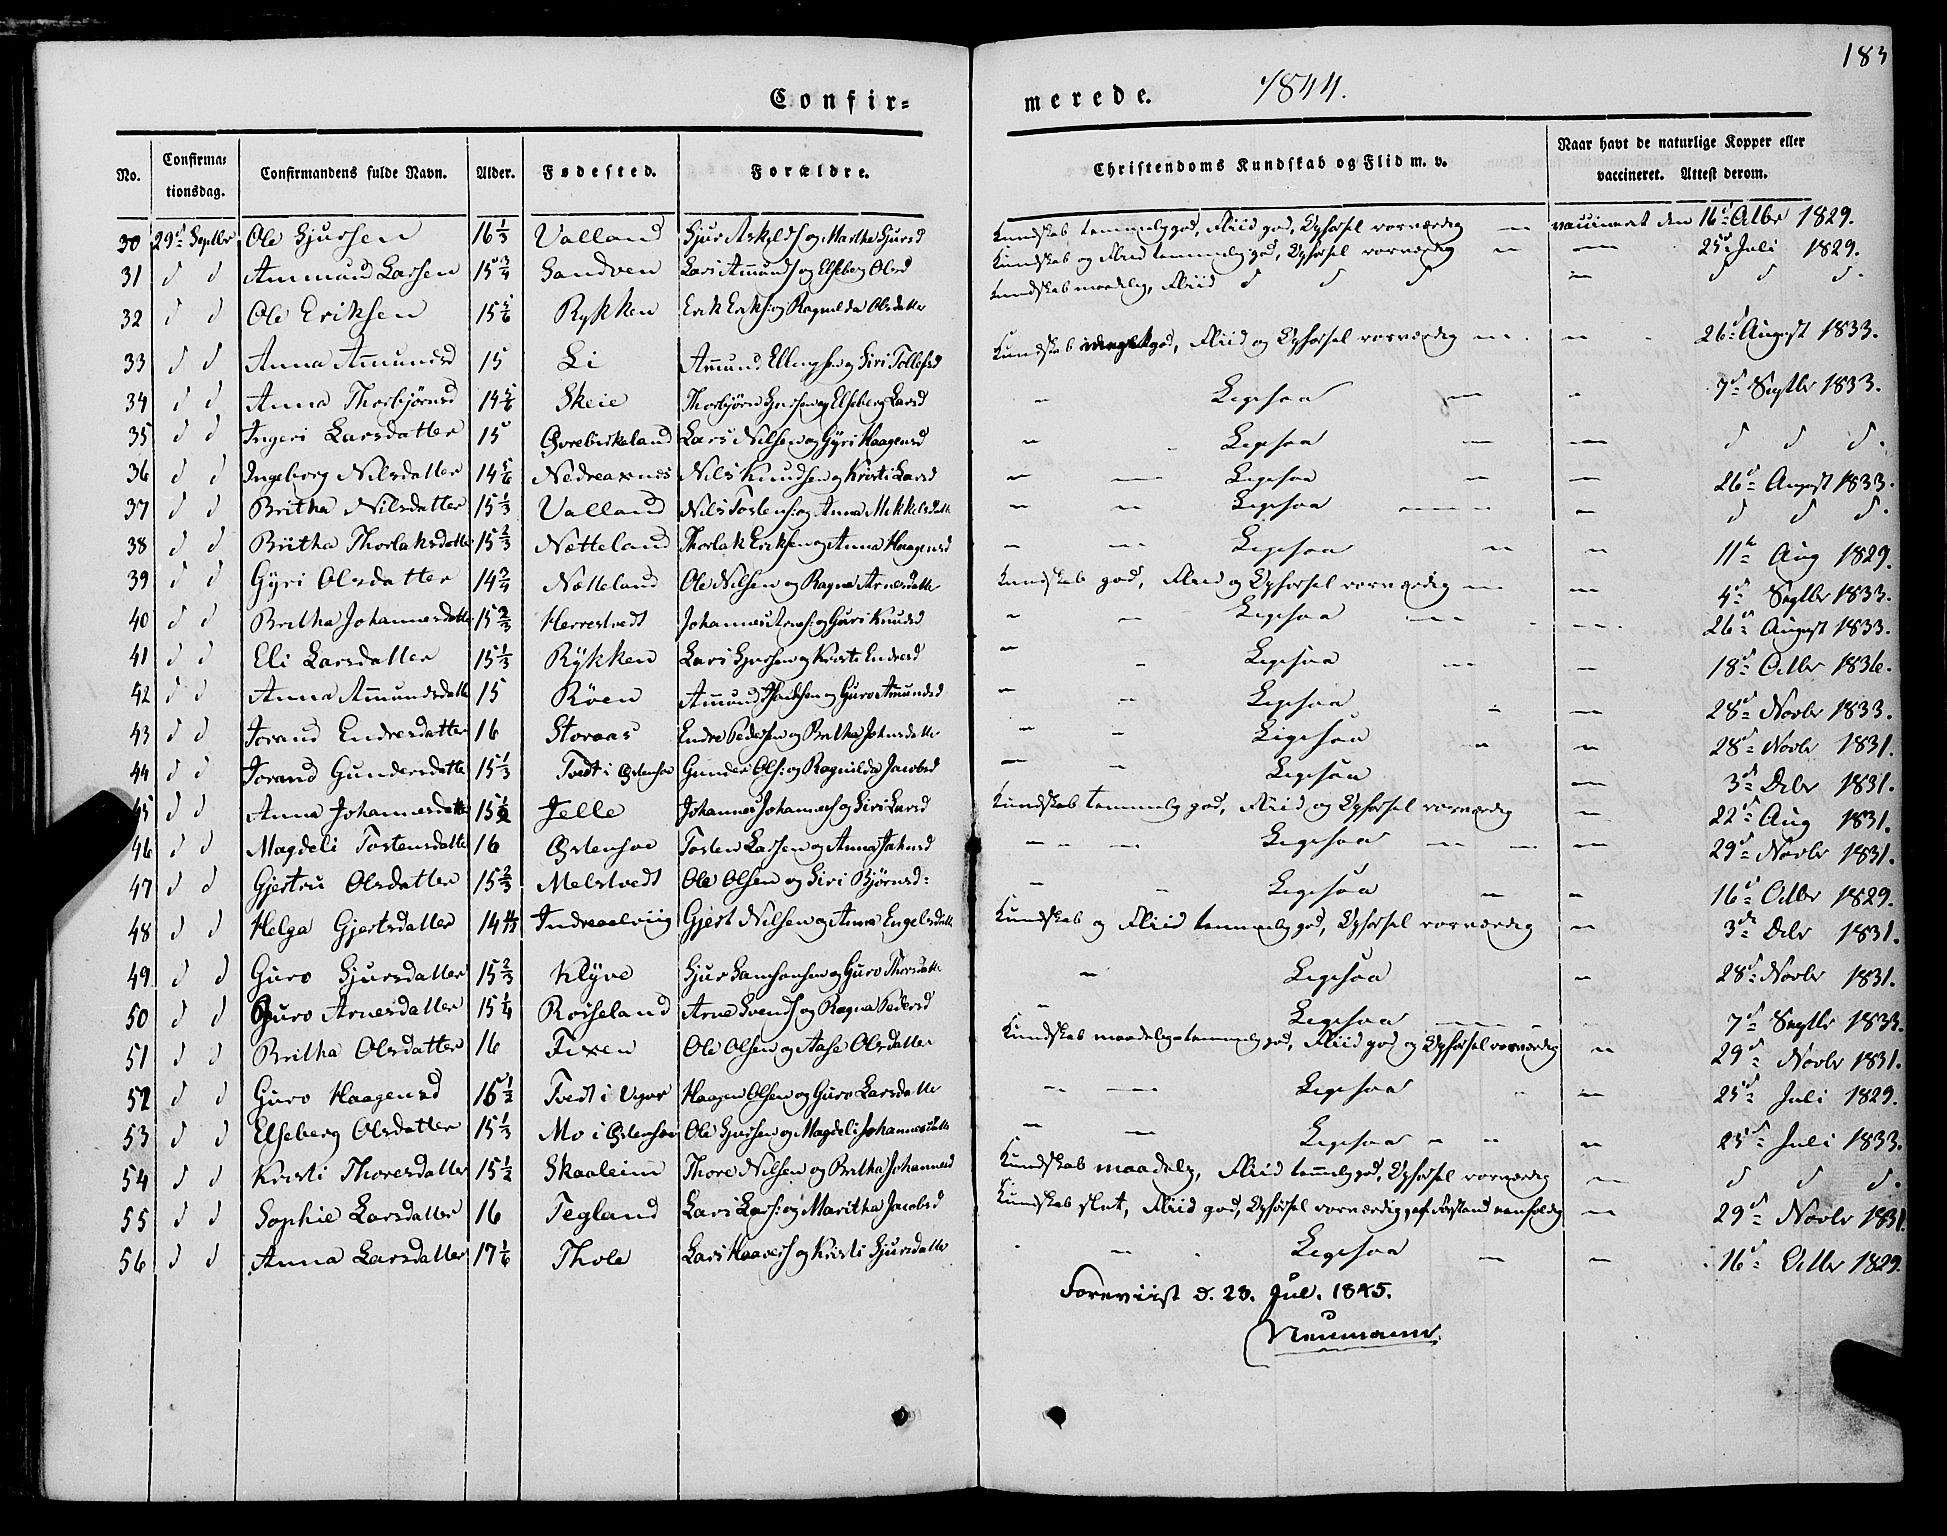 183
Confir-
merede. 1844.
No.
Confirma-
tionsdag.
Confirmandens fulde Navn.
Alder.
Fødested.
Forældre.
Christendoms Kundskab og Flid m. v.
Naar havt de naturlige Kopper eller
vaccineret. Attest derom.
30 29d Septbr Ole Sjursen 16 1/3 Valland Sjur Askylds og Martha Sjursd Kundskab temmelig god, Fliid god, Opførsel rosværdig — vaccineret den 16d Octbr 1829.
31 d d Ammund Larsen 15 3/4 Sandven Lars Amunds og Elseberg Olsd Kundskab og Fliid temmelig god, Opførsel rosværdig — — 25d Juli 1829.
32 d d Ole Eriksen 15 5/6 Rykken Erik Eriks: og Ragnilda Olsdatter Kundskab maadelig, Fliid d d d — d d d.
33 d d Anna Amundsd 15 Li Amund Ellingsen og Siri Tollefsd Kundskab god, Fliid og Opførsel rosværdig — — 26d August 1833.
34 d d Anna Thorbjørnsd 14 5/6 Skeie Thorbjørn Sjursen og Elseberg Larsd — Ligesaa — — 7d Septbr 1833.
35 d d Ingeri Larsdatter 15 Øvrebirkeland Lars Nilsen og Gyri Haagensd — Ligesaa — — d d d.
36 d d Ingeborg Nilsdatter 14 5/6 Nedreaxnes Nils Knudsen og Kristi Larsd — — Ligesaa — — 26d August 1833.
37 d d Britha Nilsdatter 15 1/3 Valland Nils Tostens: og Anna Mikkelsdatter — — Ligesaa — — d d d.
38 d d Britha Thorlaksdatter 15 2/3 Nætteland Thorlak Eriksen og Anna Haagensd — — Ligesaa — — 11te Aug 1829.
39 d d Gyri Olsdatter 14 3/4 Nætteland Ole Nilsen og Ragna Arnesdatter Kundskab god, Fliid og Opførsel rosværdig — — 4d Septbr 1833.
40 d d Britha Johannesdatter 15 2/3 Herrestvedt Johannes Arnes: og Guri Knudsd — — Ligesaa — — 26d August 1833.
41 d d Eli Larsdatter 15 1/3 Rykken Lars Sjursen og Kristi Endresd — — Ligesaa — — 18d Octbr 1836.
42 d d Anna Amundsdatter 15 Röen Amund og Guro Amundsd — — Ligesaa — — 28d Novbr 1833.
43 d d Jorand Endresdatter 16 Storaas Endre Pedersen og Britha Johnsdatter — — Ligesaa — — 28d Novbr 1831.
44 d d Jorand Gundersdatter 15 1/3 Tvedt i Østensøe Gunder Ols: og Ragnilda Jacobsd — — Ligesaa — 3d Debr 1831.
45 d d Anna Johannesdatter 15 1/2 Jelle Johannes Johannes og Siri Larsd Kundskab temmelig god, Fliid og Opførsel rosværdig — 22d Aug 1831.
46 d d Magdeli Tostensdatter 16 Østensøe Tosten Larsen og Anna Johnsd — — — Ligesaa — — — 29d Novbr 1831.
47 d d Gjertru Olsdatter 15 2/3 Melstvedt Ole Olsen og Siri Bjørnsd: — — Ligesaa — — 16d Octbr 1829.
48 d d Helga Gjertsdatter 14 11/12 Indreaalviig Gjert Nilsen og Anna Engelsdatter Kundskab og Fliid temmelig god, Opførsel rosværdig — 3d Debr 1831.
49 d d Guro Sjursdatter 15 2/3 Klyve Sjur Samsonsen og Guro Thorsdatter — Ligesaa — 28d Novbr 1831.
50 d d Guro Arnesdatter 15 1/4 Rosseland Arne Svends og Ragna Pedersd — Ligesaa — — 7d Septbr 1833.
51 d d Britha Olsdatter 16 Fixen Ole Olsen og Aase Olsdatter Kundskab maadelig-temmelig god, Fliid god og Opførsel rosværdig — 29d Novbr 1831.
52 d d Guro Haagensd 16 1/2 Tvedt i Vigør Haagen Olsen og Guro Larsdatter — — Ligesaa — — 25d Juli 1829.
53 d d Elseberg Olsdatter 15 1/3 Mo i Østensøe Ole Sjursen og Magdeli Johannesdatter — — Ligesaa — — — 25d Juli 1833.
54 d d Kristi Thoresdatter 15 1/2 Skaaleim Thore Nilsen og Britha Johannesd Kundskab maadelig, Fliid temmelig god, Opførsel rosværdig — d d d.
55 d d Sophie Larsdatter 16 Tegland Lars Lars: og Maritha Jacobsd Kundskab slet, Fliid god, Opførsel rosværdig, af Forstand eenfoldig — 29d Novbr 1831.
56 d d Anna Larsdatter 17 1/6 Thole Lars Haavers og Kristi Sjursdatter — Ligesaa — — 16d Octbr 1829.
Foreviist d. 23. Jul. 1845.
Neumann.